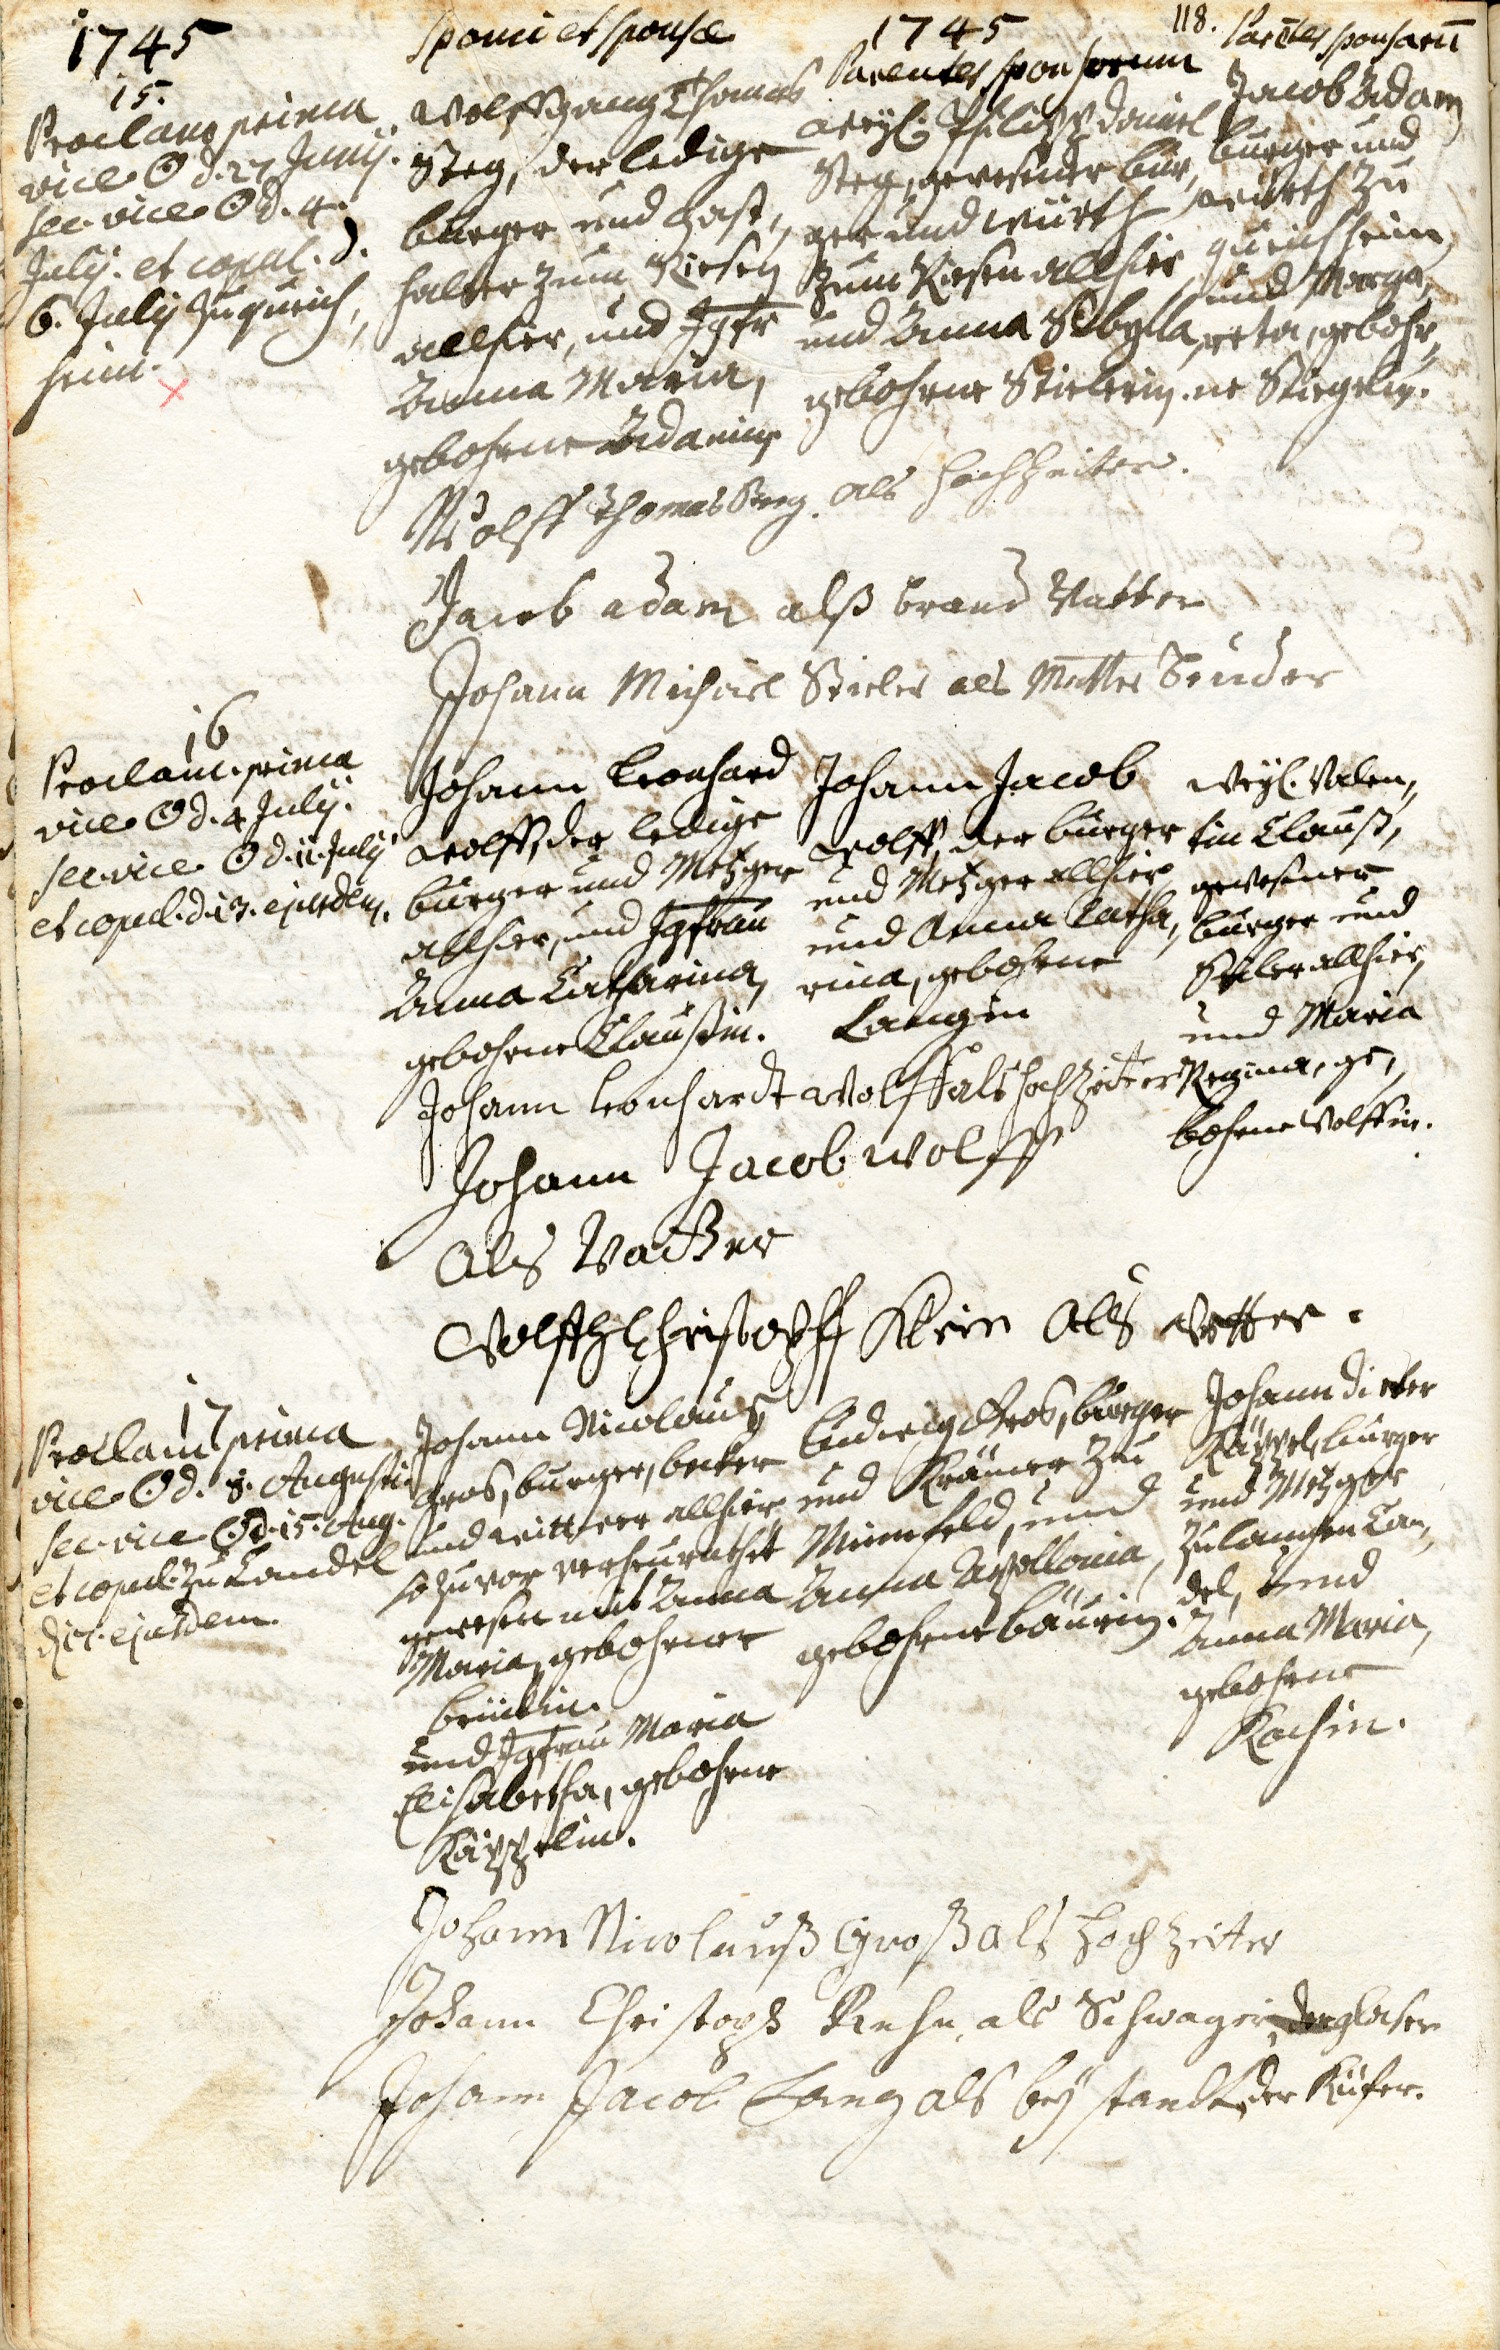 1745
sponsi et sponsæ
1745
118.
Parentes sponsorum
Parētes sponsarū
15.
Proclam. prima
vice ☉ d. 27 Junij.
sec. vice ☉ d. 4.
July. et copul. d.
6. July zu queich,,
heim.
Wolffgang Thomas
Steg, der ledige
burger und Gast,,
halter zum Riesen
allhier, und Jgfr
Anna Maria,
gebohrne Adamin
weyl. Philipp daniel
Steg, gewesener bur,,
ger und würth
zum Riesen allhier
und Anna Sibylla,
gebohrne Stielerin.
Jacob Adam
burger und
würth zu
queichheim,
und Marga,,
reta, gebohr,,
ne Stiegelin.
Wolff Thomas Steg als Hochzeiter.
Jacob adam alß braud Vatter
Johann Michael Stieler als Mutter Bruder
16
Proclam. prima
vice ☉ d. 4 July.
sec. vice ☉ d. 11. July
et copul. d. 13. ejusdem.
Johann Leonhard
Wolff, der ledige
burger und Metzger
allhier, und Jgfrau
Anna Catharina,
gebohrne Claußin.
Johann Jacob
Wolff, der burger
und Metzger allhier
und Anna Catha,,
rina, gebohrne
Langin
weyl. Valen,,
tin Clauß,
gewesener
burger und
Seiler allhier,
und Maria
Regina, ge,,
bohrne Wolffin.
Johann Leonhardt Wolff als hochzeiter
Johann Jacob Wolff
als Vatter
Wolff Christopff Klein als Vetter.
17
Proclam prima
vice ☉ d. 8. Augusti
sec. vice ☉ d. 15. Aug.
et copul. zu Candel
d. 17. ejusdem.
Johann Nicolaus
Gros, burger, becker
und wittwer allhier
so zuvor verheurathet
gewesen mit Anna
Maria, gebohrner
und Jgfrau Maria
Elisabetha, gebohrne
Käppelin.
Ludwig Gros, burger
und Krämer zu
Minfeld, und
Anna Apollonia,
gebohrne bäurin.
Johann dieter
Käppel, burger
und Metzger
zu langen Can,,
del, und
Anna Maria,
gebohrne
Kochin.
Johann Nicolauß Groß als Hochzeiter
Johann Christoph Rehn als Schwager, der glaser
Johann Jacob Lang als beystandt, der Küfer.